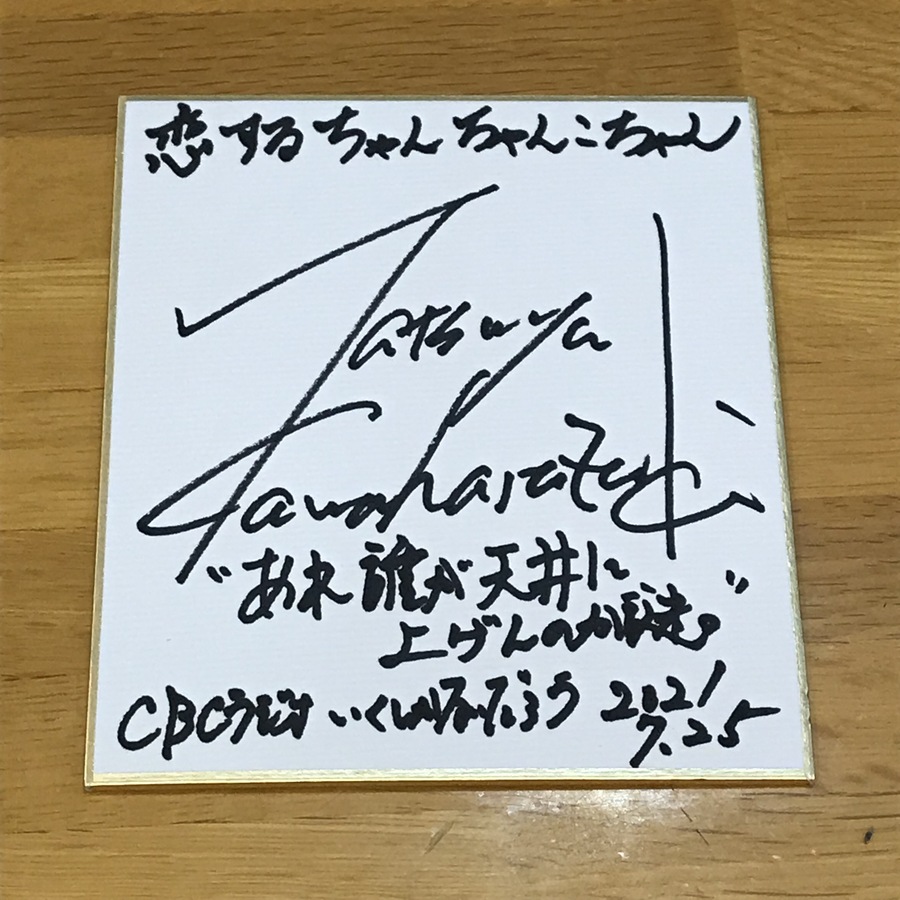 恋するちゃんちゃんこちゃん
Tatsuya
Kawaharazuki
"あれ誰が天井に
上げんのか謎。"
CBCラジオ いくしかないだろう 2021
7.25